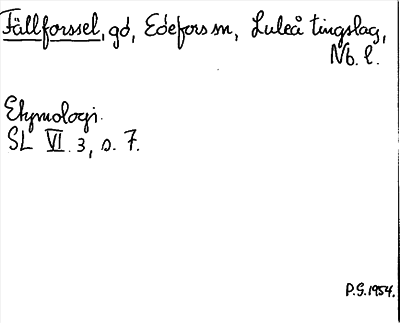 Fällforssel, gd, Edefors sn, Luleå tingslag,
Nb. l.
Etymologi.
SL VI. 3, s. 7.
P.G. 1954.